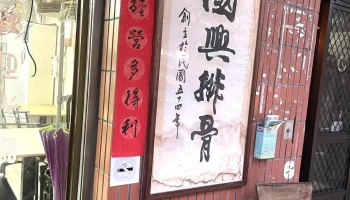 國興排骨
創立於民國五十四年
經營多得利